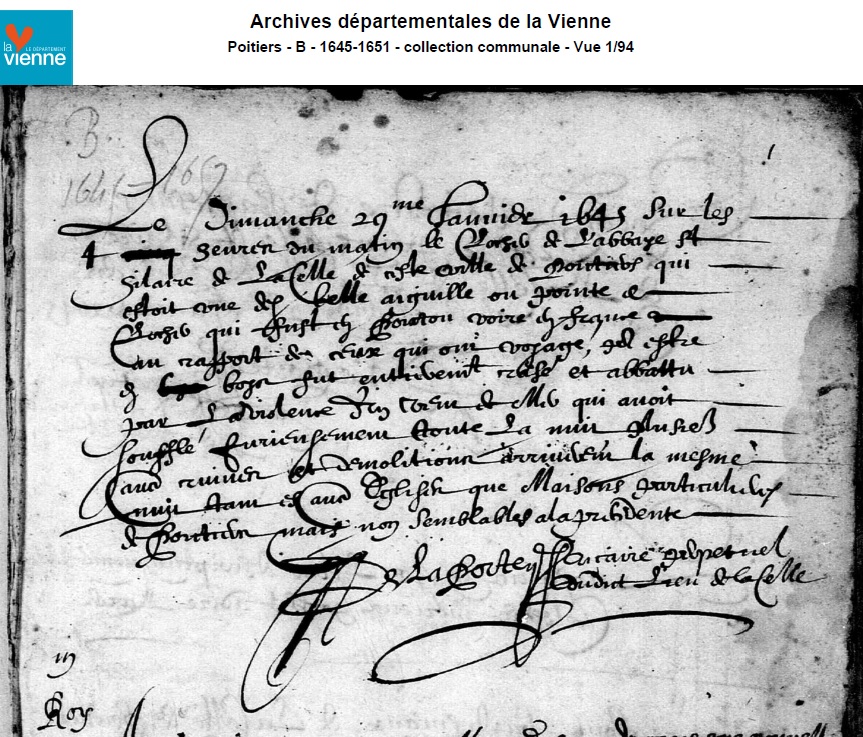 la vienne
LE DÉPARTEMENT
Archives départementales de la Vienne
Poitiers - B - 1645-1651 - collection communale - Vue 1/94
B.
1645
1
Le Dimanche 29me Januier 1645 sur les
4 heures du matin le Clocher de L'abbaye St
hilaire de La Celle de ceste ville de Poictiers qui
estoit vne des belle aiguille ou pointe de
Clocher qui fust en Poictou voire en france
au rapport de ceux qui ont voyagé,
et abbattu
par La violence d'un vent de Mer qui auoit
soufflé furieusement toute La nuit
ruines et demolitions arriuerent la mesme
nuit tant es Eglises que Maisons particulieres
de Poictiers mais non semblables a la precedente
De Laporte Vicaire perpetuel
dudict Lieu de la Celle
Roy